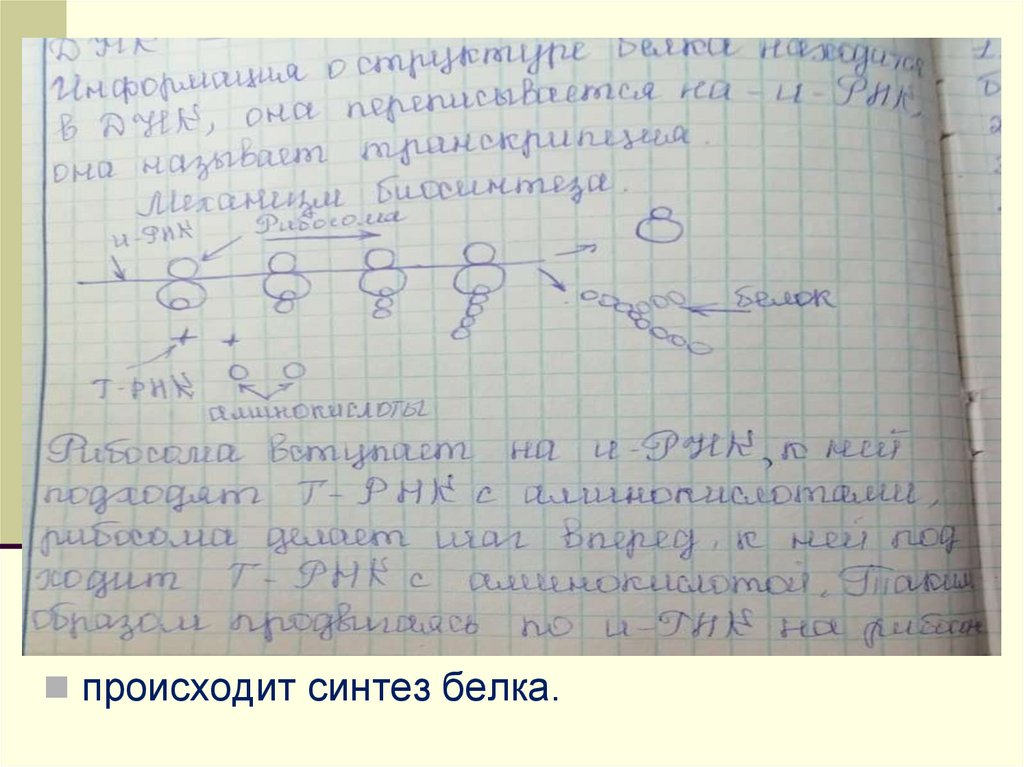 ДНК
Информация о структуре белка находится
в ДНК, она переписывается на-и-РНК,
она называет транскрипция.
Механизм биосинтеза.
и-РНК
Рибосома
белок
Т-РНК
аминокислоты
Рибосома вступает на и-РНК, к ней
подходят Т-РНК с аминокислотами,
рибосома делает шаг вперед, к ней под
ходит Т-РНК с аминокислотой. Таким
образом продвигаясь по и-РНК на рибосом
происходит синтез белка.